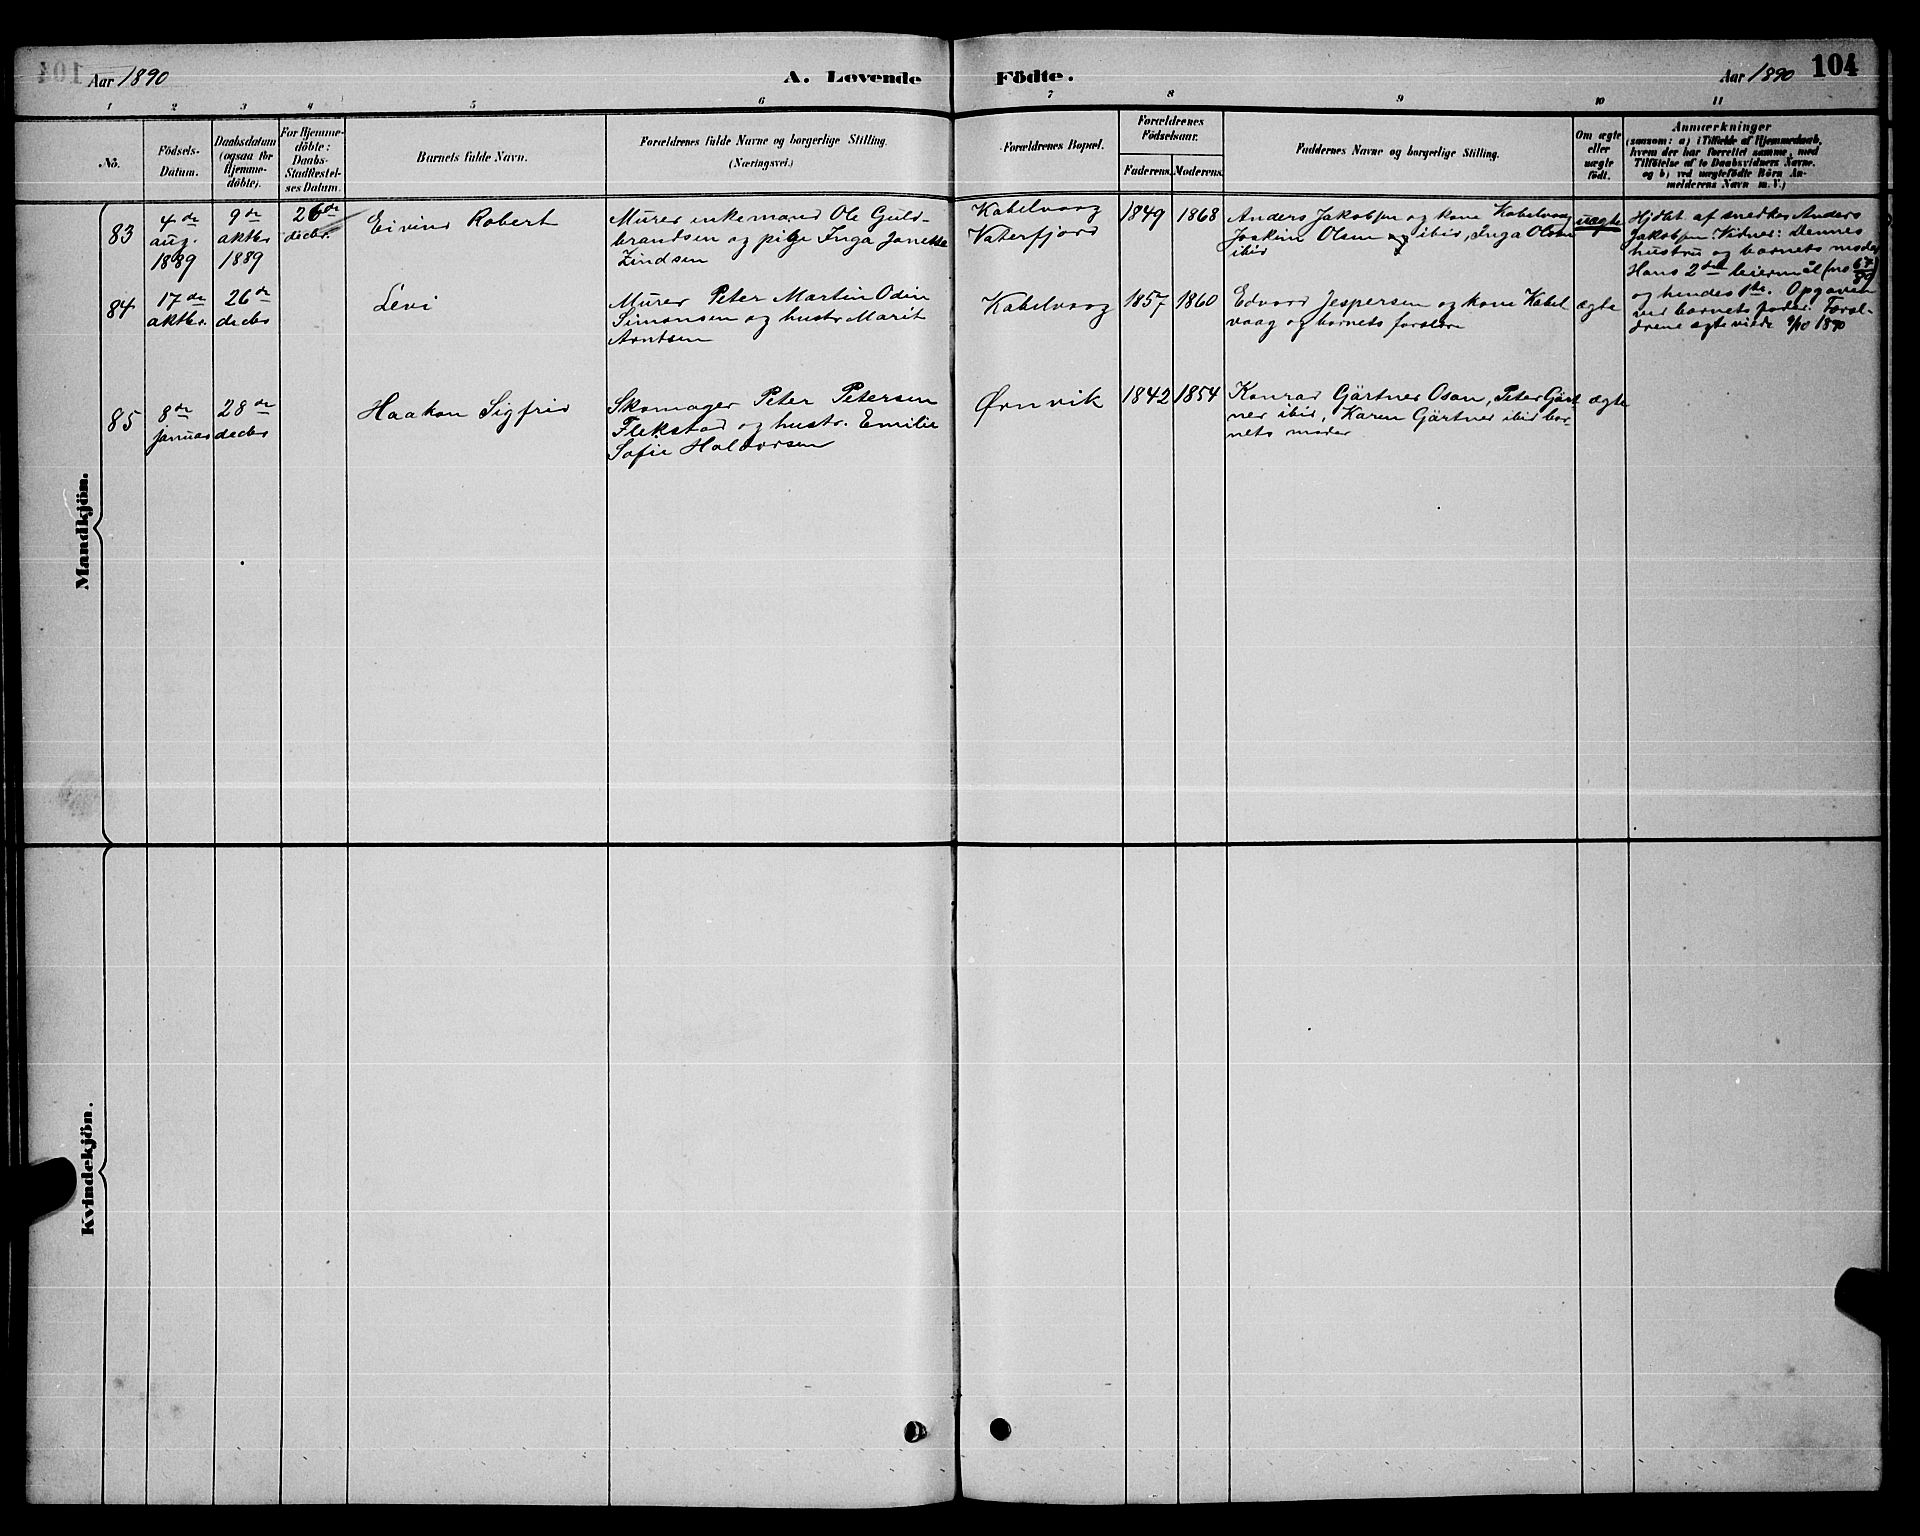 104
Aar 1890
A. Levende
Födte.
Aar 1890
104
1 2 3 4 5 6 7 8 9 10 11
No.
Födsels-
Datum.
Daabsdatum
(ogsaa for
Hjemme-
döbte).
For Hjemme-
döbte:
Daabs-
Stadfestel-
ses Datum.
Barnets fulde Navn.
Forældrenes fulde Navne og borgerlige Stilling.
(Næringsvei.)
Forældrenes Bopæl.
Forældrenes
Födselsaar.
Faderens. Moderens.
Faddernes Navne og borgerlige Stilling.
Om ægte
eller
uægte
födt.
Anmærkninger
(saasom: a) i Tilfælde af Hjemmedaab,
hvem der har forrettet samme, med
Tilföielse af to Daabsvidners Navne.
og b) ved uægtefödte Börn An-
melderens Navn m. V.)
Mandkjön.
83
4de
aug.
1889
9de
oktbr
1889
26de
decbr.
Eivind Robert
Murer enkemand Ole Guld-
brandsen og pige Inga Janette
Zindsen
Kabelvaag
Vaterfjord
1849
1868
Anders Jakobsen og kone Kabelvaag
Joakim Olsen ibid, Inga Olsen
ibid
uægte
Hjdbt af snedker Anders
Jakobsen. Vidner: Dennes
hustru og barnets moder
Hans 2det leiermål (no 67/89)
og hendes 1te. Opgaven
ved barnets fader. Foræl-
drene ægteviede 9/10 1890
84
17de
oktbr.
26de
decbr
Levi
Murer Peter Martin Odin
Simonsen og hustr. Marit
Arntsen
Kabelvaag
1857
1860
Edvard Jespersen og kone Kabel
vaag og barnets forældre
ægte
85
8de
januar
28de
decbr
Haakon Sigfrid
Skomager Peter Petersen
Flekstad og hustr. Emilie
Sofie Haldorsen
Ørnvik
1842
1854
Konrad Gärtner Osan, Peter Gärt
ner ibid, Karen Gärtner ibid bar-
nets moder
ægte
Kvindekjön.